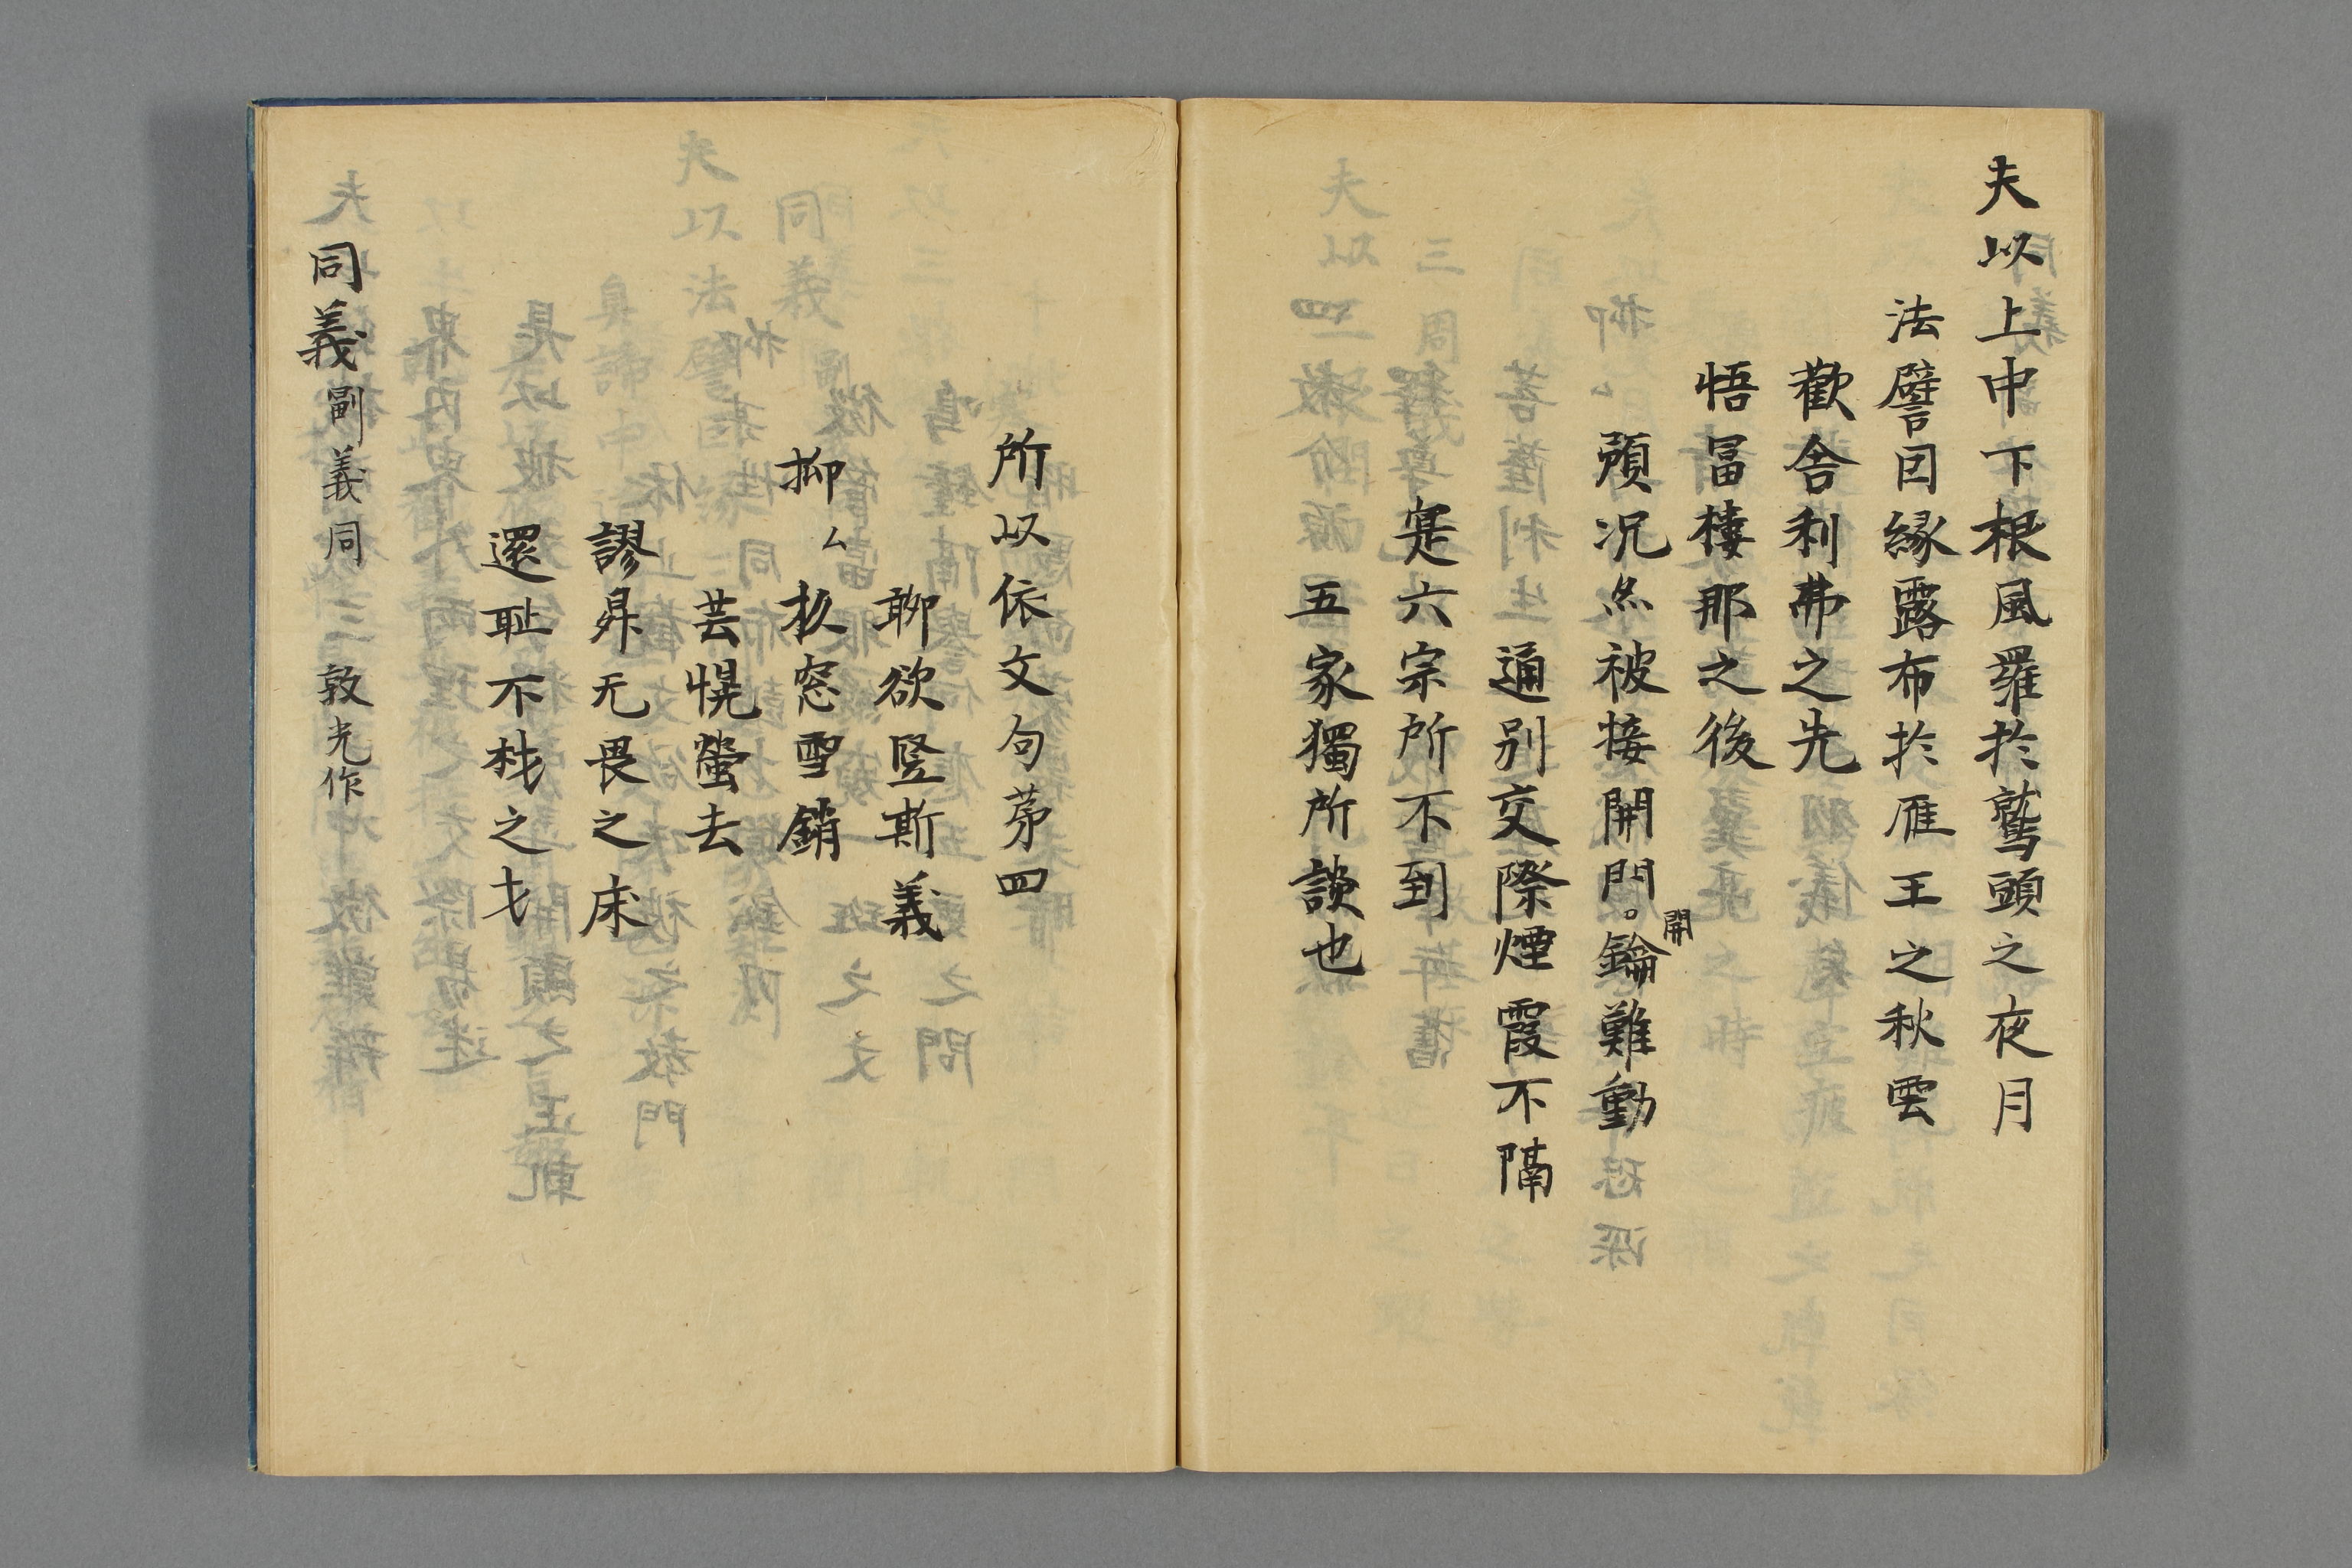 夫以上中下根風羅於鷲頭之夜月
法譬因縁露布於雁王之秋雲
歡舎利弗之先
悟冨樓那之後
須況尒被接開門。鑰難動
開
通別交際煙霞不隔
寔六宗所不到
五家獨所談也
所以依文句苐四
聊欲竪斯義
抑ム松窓雪銷
芸幌螢去
謬昇无畏之床
還耻不材之才
同義副義同 敦光作